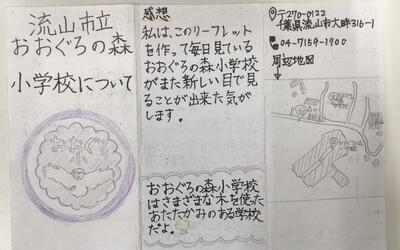 流山市立
おおぐろの森
小学校について
おおぐろ
感想
私は、このリーフレット
を作って毎日見ている
おおぐろの森小学校
がまた新しい目で見
ることが出来た気が
します。
おおぐろの森小学校
はさまざまな木を使った
あたたかみのある学校
だよ。
〒270-0122
千葉県流山市大畔316-1
04-7159-1900
周辺地図